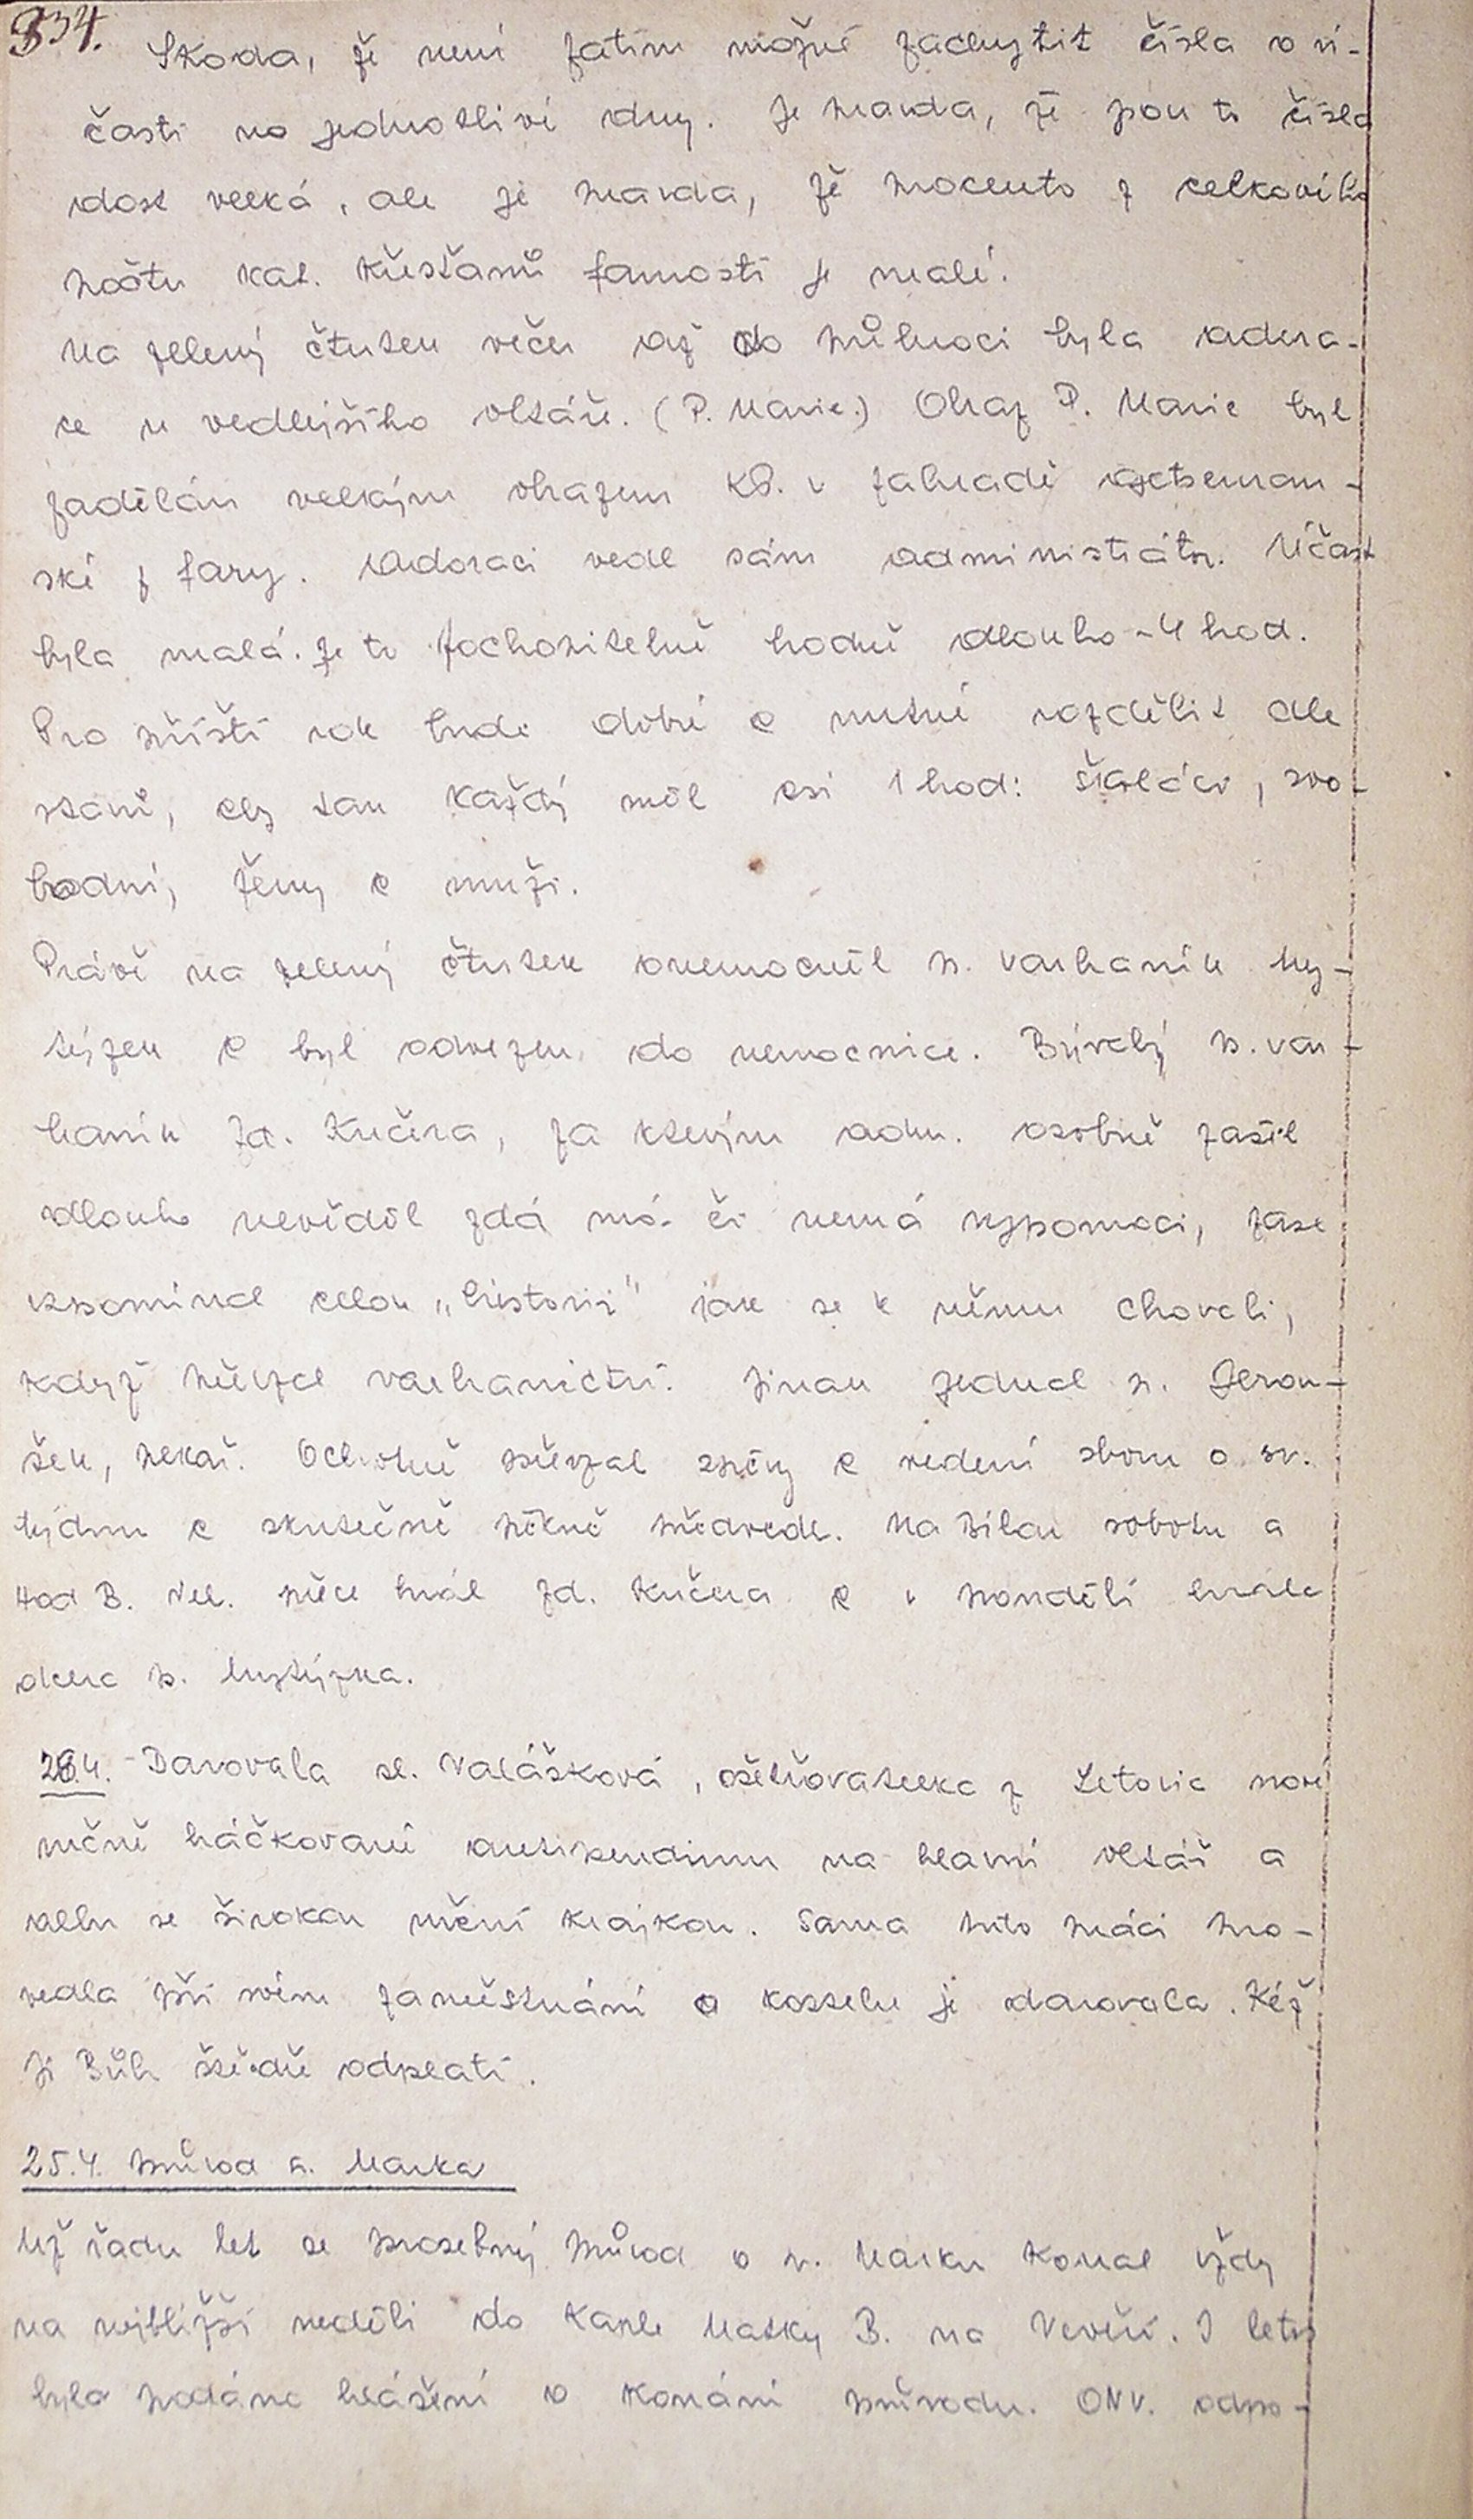 334.
Škoda, že není zatím možné zachytit čísla o ú-
časti na jednotlivé dny. Je pravda, že jsou to čísla
dost velká, ale je pravda, že procento z celkového
počtu kat. křesťanů farnosti je malé.
Na zelený čtvrtek večer až do půlnoci byla adora-
ce u vedlejšího oltáře. (P. Marie.) Obraz P. Marie byl
zadělán velkým obrazem KP. v zahradě getseman-
ské z fary. Adoraci vedl sám administrátor. Účast
byla malá. Je to pochopitelně hodně dlouho - 4 hod.
Pro příští rok bude dobré a nutné rozdělit dle
stavů, aby tam každý měl asi 1 hod: školáci, svo-
bodní, ženy a muži.
Právě na zelený čtvrtek onemocněl p. varhaník My-
týzek a byl odvezen do nemocnice. Bývalý p. var-
haník Zd. Kučera, za kterým adm. osobně zašel
dlouho nevěděl zdá má či nemá vypomoci, zase
vzpomínal celou „historii" jak se k němu chovali,
když převzal varhanictví. Jinak jednal p. Beran-
šek, pekař. Ochotně převzal zpěvy a vedení sboru o sv.
týdnu a skutečně pěkně předvedl. Na Bílou sobotu a
Hod B. Vel. přece hrál Zd. Kučera a v pondělí hrála
dcera p. Mytýzka.
28.4. Darovala sl. Valášková, ošetřovatelka z Letovic nové
ručně háčkované antipendium na hlavní oltář a
albu se širokou ruční krajkou. Sama tuto práci pro-
vedla při svém zaměstnání a kostelu je darovala. Kéž
jí Bůh štědře odplatí.
25.4. Průvod sv. Marka
Už řadu let se prosebný průvod o sv. Marku konal vždy
na nejbližší neděli do kaple Matky B. na Veveří. I letos
bylo podáno hlášení o konání průvodu. ONV. odpo-